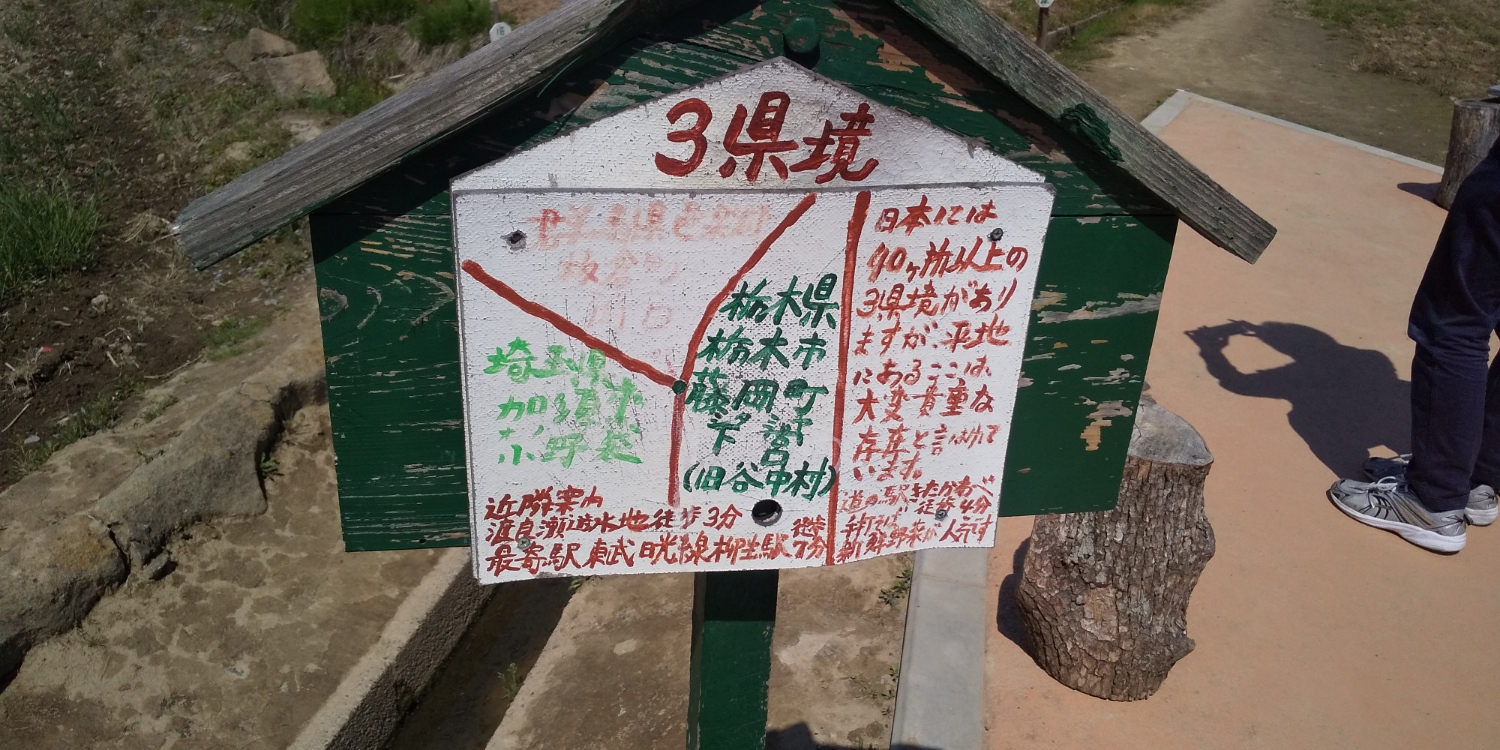 3県境
群馬県邑楽郡
板倉町
川口
埼玉県
加須市
小野袋
栃木県
栃木市
藤岡町
下宮
(旧谷中村)
日本には
40ヶ所以上の
3県境があり
ますが、平地
にあるここは、
大変貴重な
存在と言われて
います。
近隣案内
渡良瀬遊水地 徒歩3分
最寄駅 東武日光線柳生駅 徒歩7分
道の駅きたかわべ
徒歩4分
手打そば
新鮮野菜が人気です